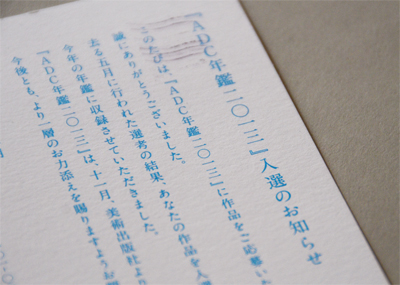 『ADC年鑑二〇一三』入選のお知らせ
このたびは、『ADC年鑑二〇一三』に作品をご応募い
誠にありがとうございました。
去る五月に行われた選考の結果、あなたの作品を入選
今年の年鑑に収録させていただきました。
『ADC年鑑二〇一三』は、十一月、美術出版社より
今後とも、より一層のお力添えを賜りますようお